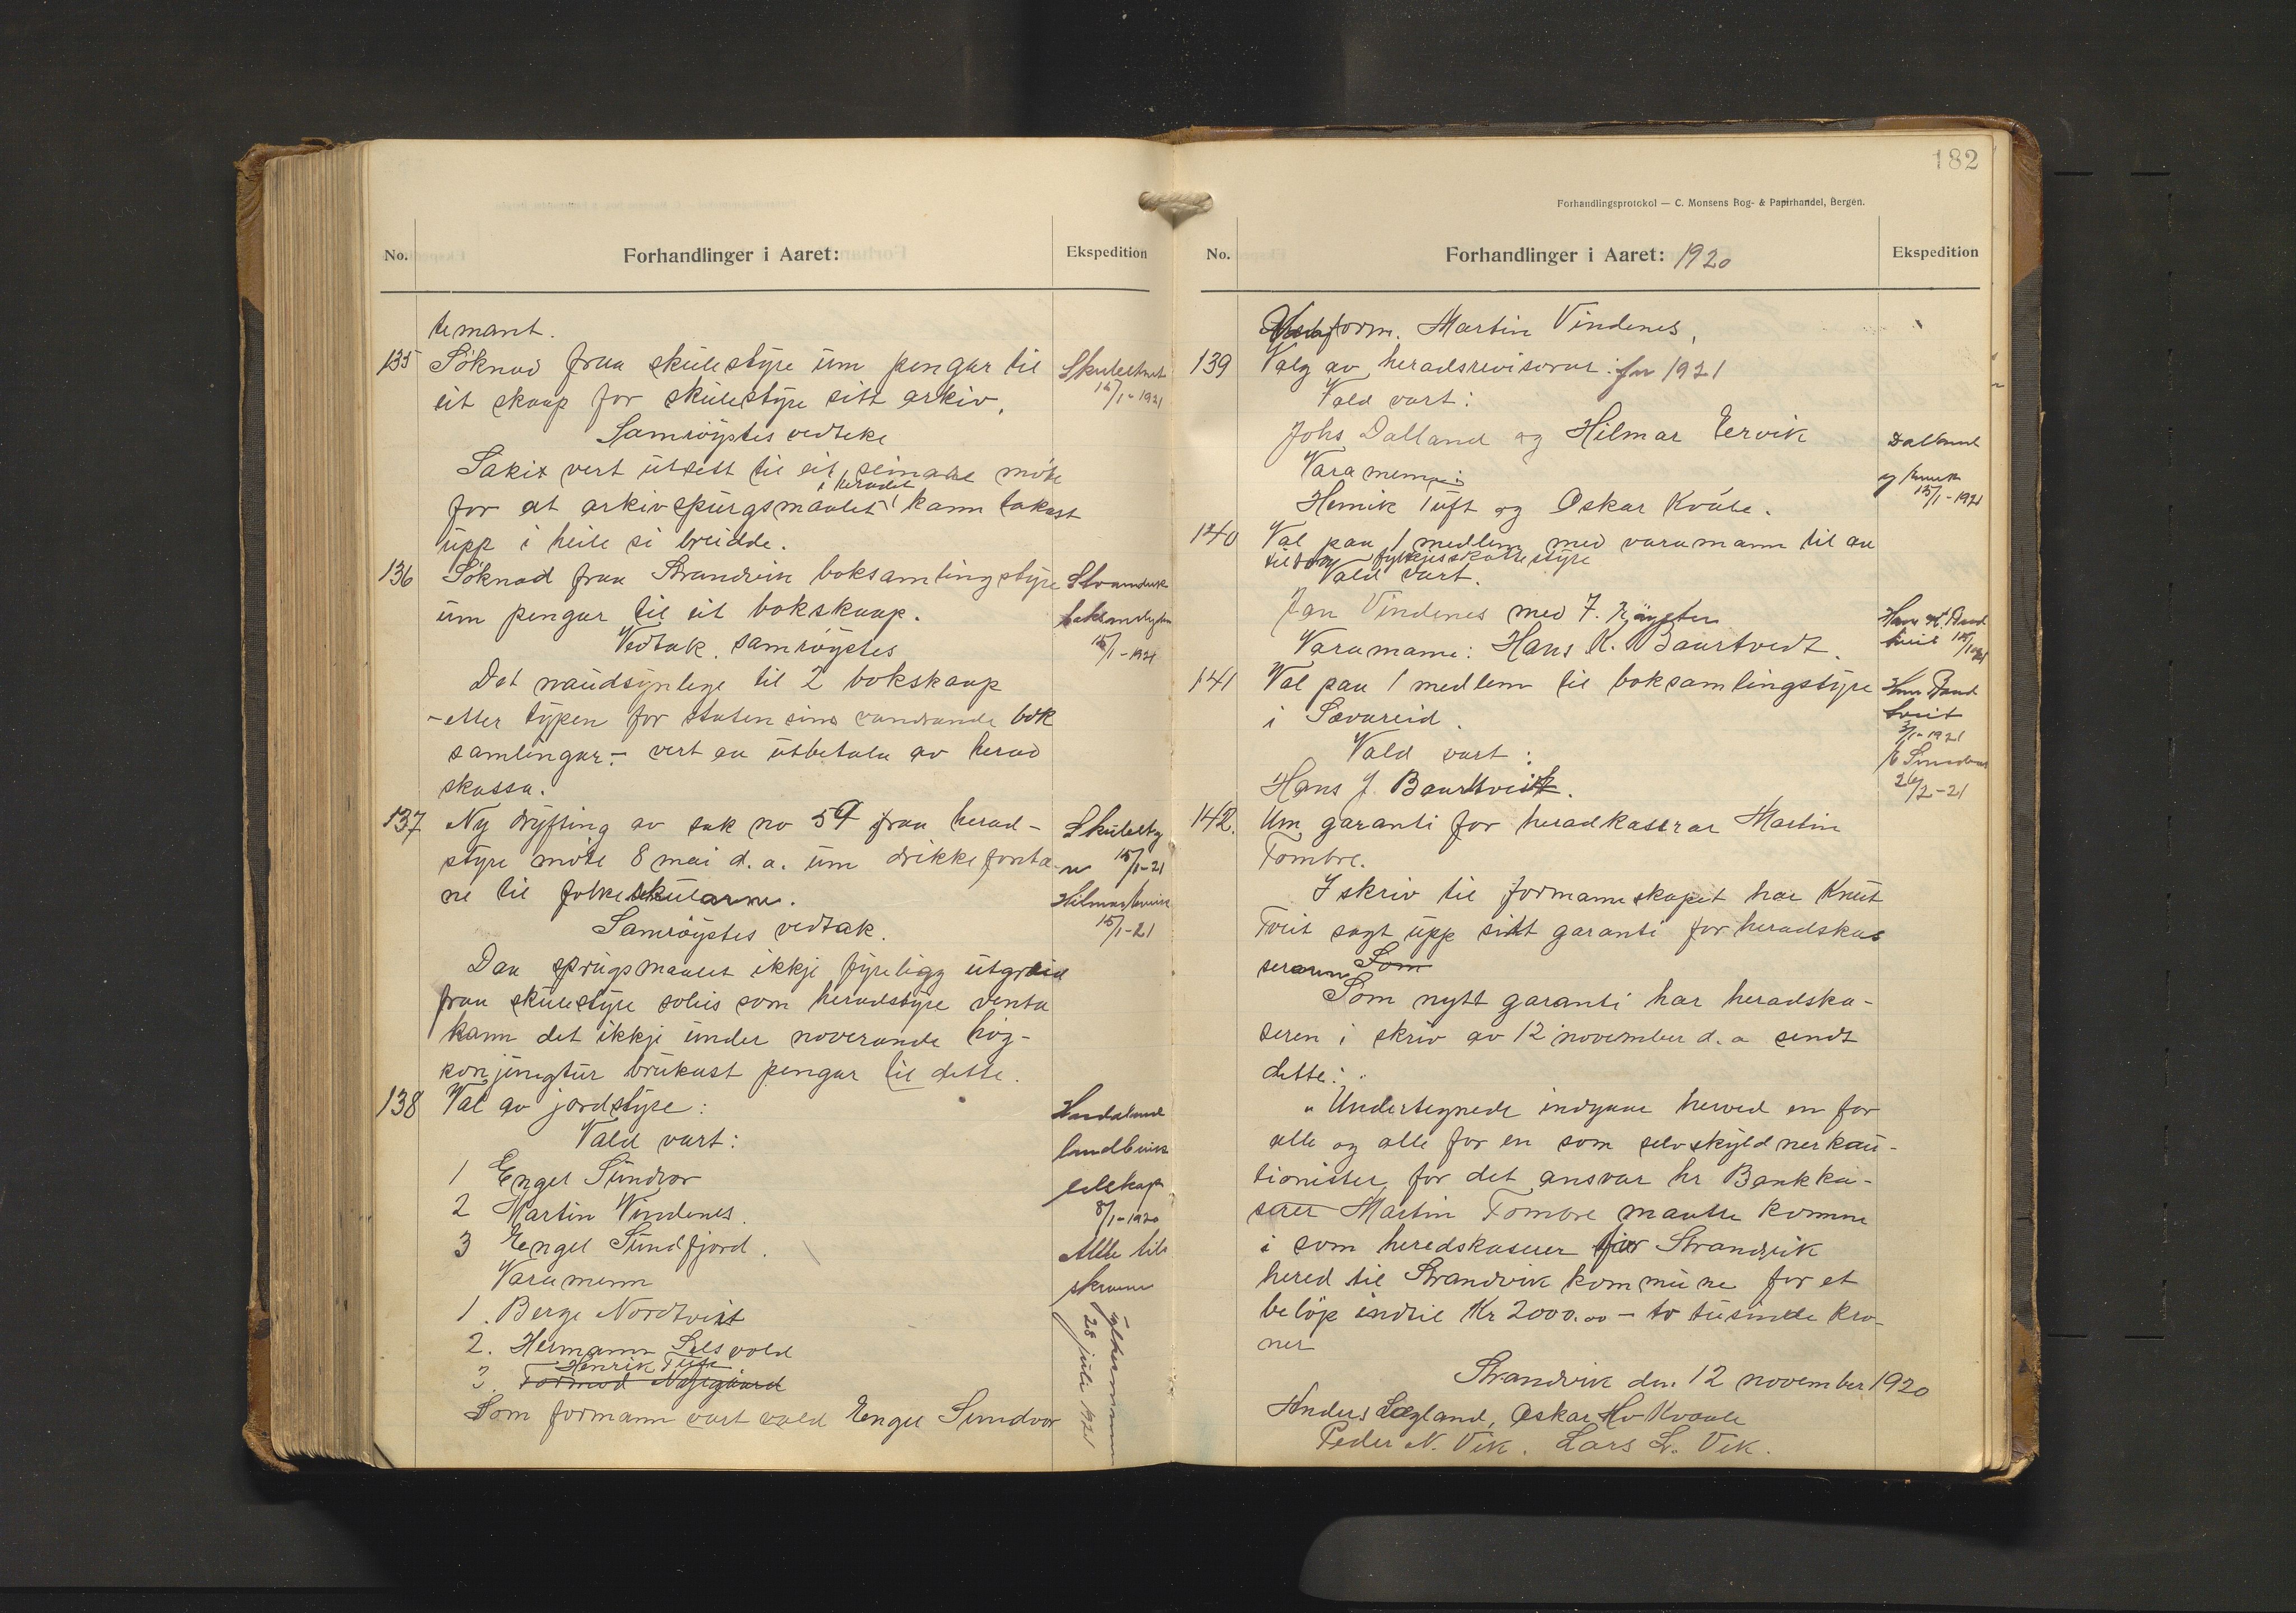 No.
Forhandlinger i Aaret:
Ekspedition
temant.
135 Söknad fraa skulestyre um pengar til
eit skaap for skulestyre sitt arkiv.
Samröystes vedteke
Saki vert utsett til eit seinare möte
i heradet
for at arkivspurgsmaalet kann takast
upp i heile si breidde.
15/1-1921
136 Söknad fraa Strandvik boksamlingstyre
um pengar til eit bokskaap.
Vedtak samröystes
Det naudsynlege til 2 bokskaap
- etter typen for staten sine vandrande bok
samlingar - vert aa utbetala av herad
skassa.
Strandvik
15/1-1921
137 Ny dryfting av sak no 59 fraa herad-
styre möte 8 mai d.a. um drikkefonte-
ne til folkeskularne.
Samröystes vedtak.
Daa sprugsmaalet ikkje fyreligg utgreid
fraa skulestyre soleis som heradstyre venta
kann det ikkje under noverande høg-
konjungtur brukast pengar til dette.
15/1-21
15/1-21
138 Val av jordstyre:
Vald vart:
1 Engel Sundvor
2 Martin Vindenes.
3 Engel Sundfjord.
Varamenn
1. Berge Nordtveit
2. Hermann Salsvold
Henrik Tuft
3.
Som formann vart vald Engel Sundvor
Hordaland
landbruks
selskap
8/1-1920
Alle til
fylkesmannen
28 juli 1921
182
Forhandlingsprotokol — C. Monsens Bog- & Papirhandel, Bergen.
No.
Forhandlinger i Aaret: 1920
Ekspedition
Varaform. Martin Vindenes,
139 Valg av heradsrevisorar for 1921
Vald vart:
Johs Dalland og Hilmar Lervik
Varamenn:
Henrik Tuft og Oskar Kvåle.
Dalland
15/1-1921
140 Val paa 1 medlem med varamann til aa
fylkjesskattestyre
Vald vart.
Jan Vindenes med 7. röyster
Varamann: Hans K. Baurtvedt.
141 Val paa 1 medlem til boksamlingstyre
i Sævareid.
Vald vart:
Hans J. Baurtveit.
3/1-1921
26/2-21
142. Um garanti for heradkasserar Martin
Tombre.
I skriv til formannskapet har Knut
Tveit sagt upp sitt garanti for heradskas
seraren Som
Som nytt garanti har heradska-
seren i skriv av 12 november d.a sendt
dette:
"Undertegnede indgaar herved en for
alle og alle for en som selvskyldnerkau-
tionister for det ansvar hr Bankka-
serer Martin Tombre maatte komme
i som heredskaserer for Strandvik
hered til Strandvik kommune for et
belöp indtil Kr 2000.00 - to tusinde kro-
ner
Strandvik den 12 november 1920
Anders Lægland, Oskar Hv Kvaale
Peder N. Vik. Lars L. Vik.